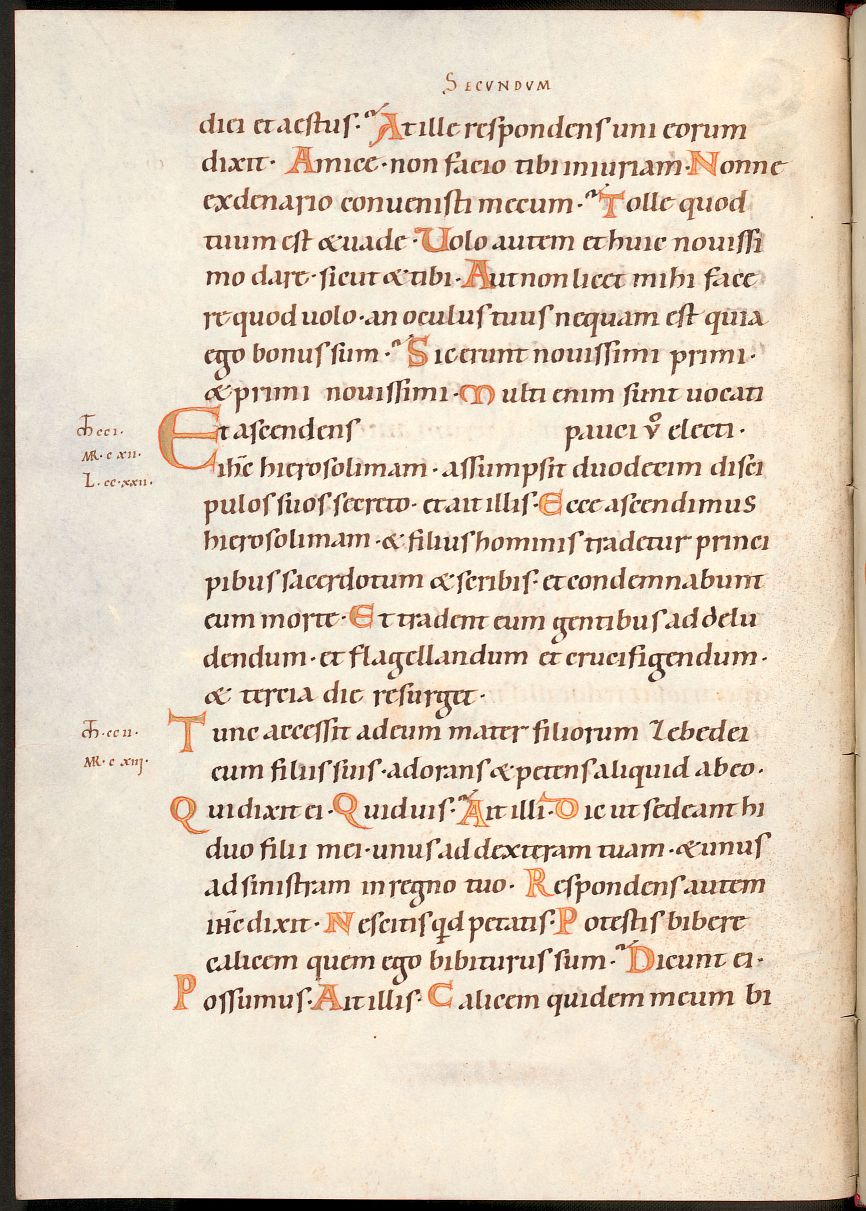 SECVNDVM
diei et aestus. At ille respondens uni eorum
dixit. Amice. non facio tibi iniuriam. Nonne
ex denario conuenisti mecum. Tolle quod
tuum est & uade. Uolo autem et huic nouissi
mo dare. sicut & tibi. Aut non licet mihi face
re quod uolo. an oculus tuus nequam est quia
ego bonus sum. Sic erunt nouissimi primi.
& primi nouissimi. Multi enim sunt uocati
Et ascendens pauci v̊ electi.
ih̅c hierosolimam. assumpsit duodecim disci
pulos suos secreto. et ait illis. Ecce ascendimus
hierosolimam. & filius hominis tradetur princi
pibus sacerdotum & scribis. et condemnabunt
eum morte. Et tradent eum gentibus ad delu
dendum. et flagellandum et crucifigendum.
& tercia die resurget.
Tunc accessit ad eum mater filiorum Zebedei
cum filiis suis. adorans & petens aliquid ab eo.
Qui dixit ei. Quid uis. Ait illi. Dic ut sedeant hi
duo filii mei. unus ad dexteram tuam. & unus
ad sinistram in regno tuo. Respondens autem
ih̅c dixit. Nescitis qd petatis. Potestis bibere
calicem quem ego bibiturus sum. Dicunt ei.
Possumus. Ait illis. Calicem quidem meum bi
M̅ cci.
MR. c xii.
L. cc. xxii.
M̅. ccii.
MR. c xiii.